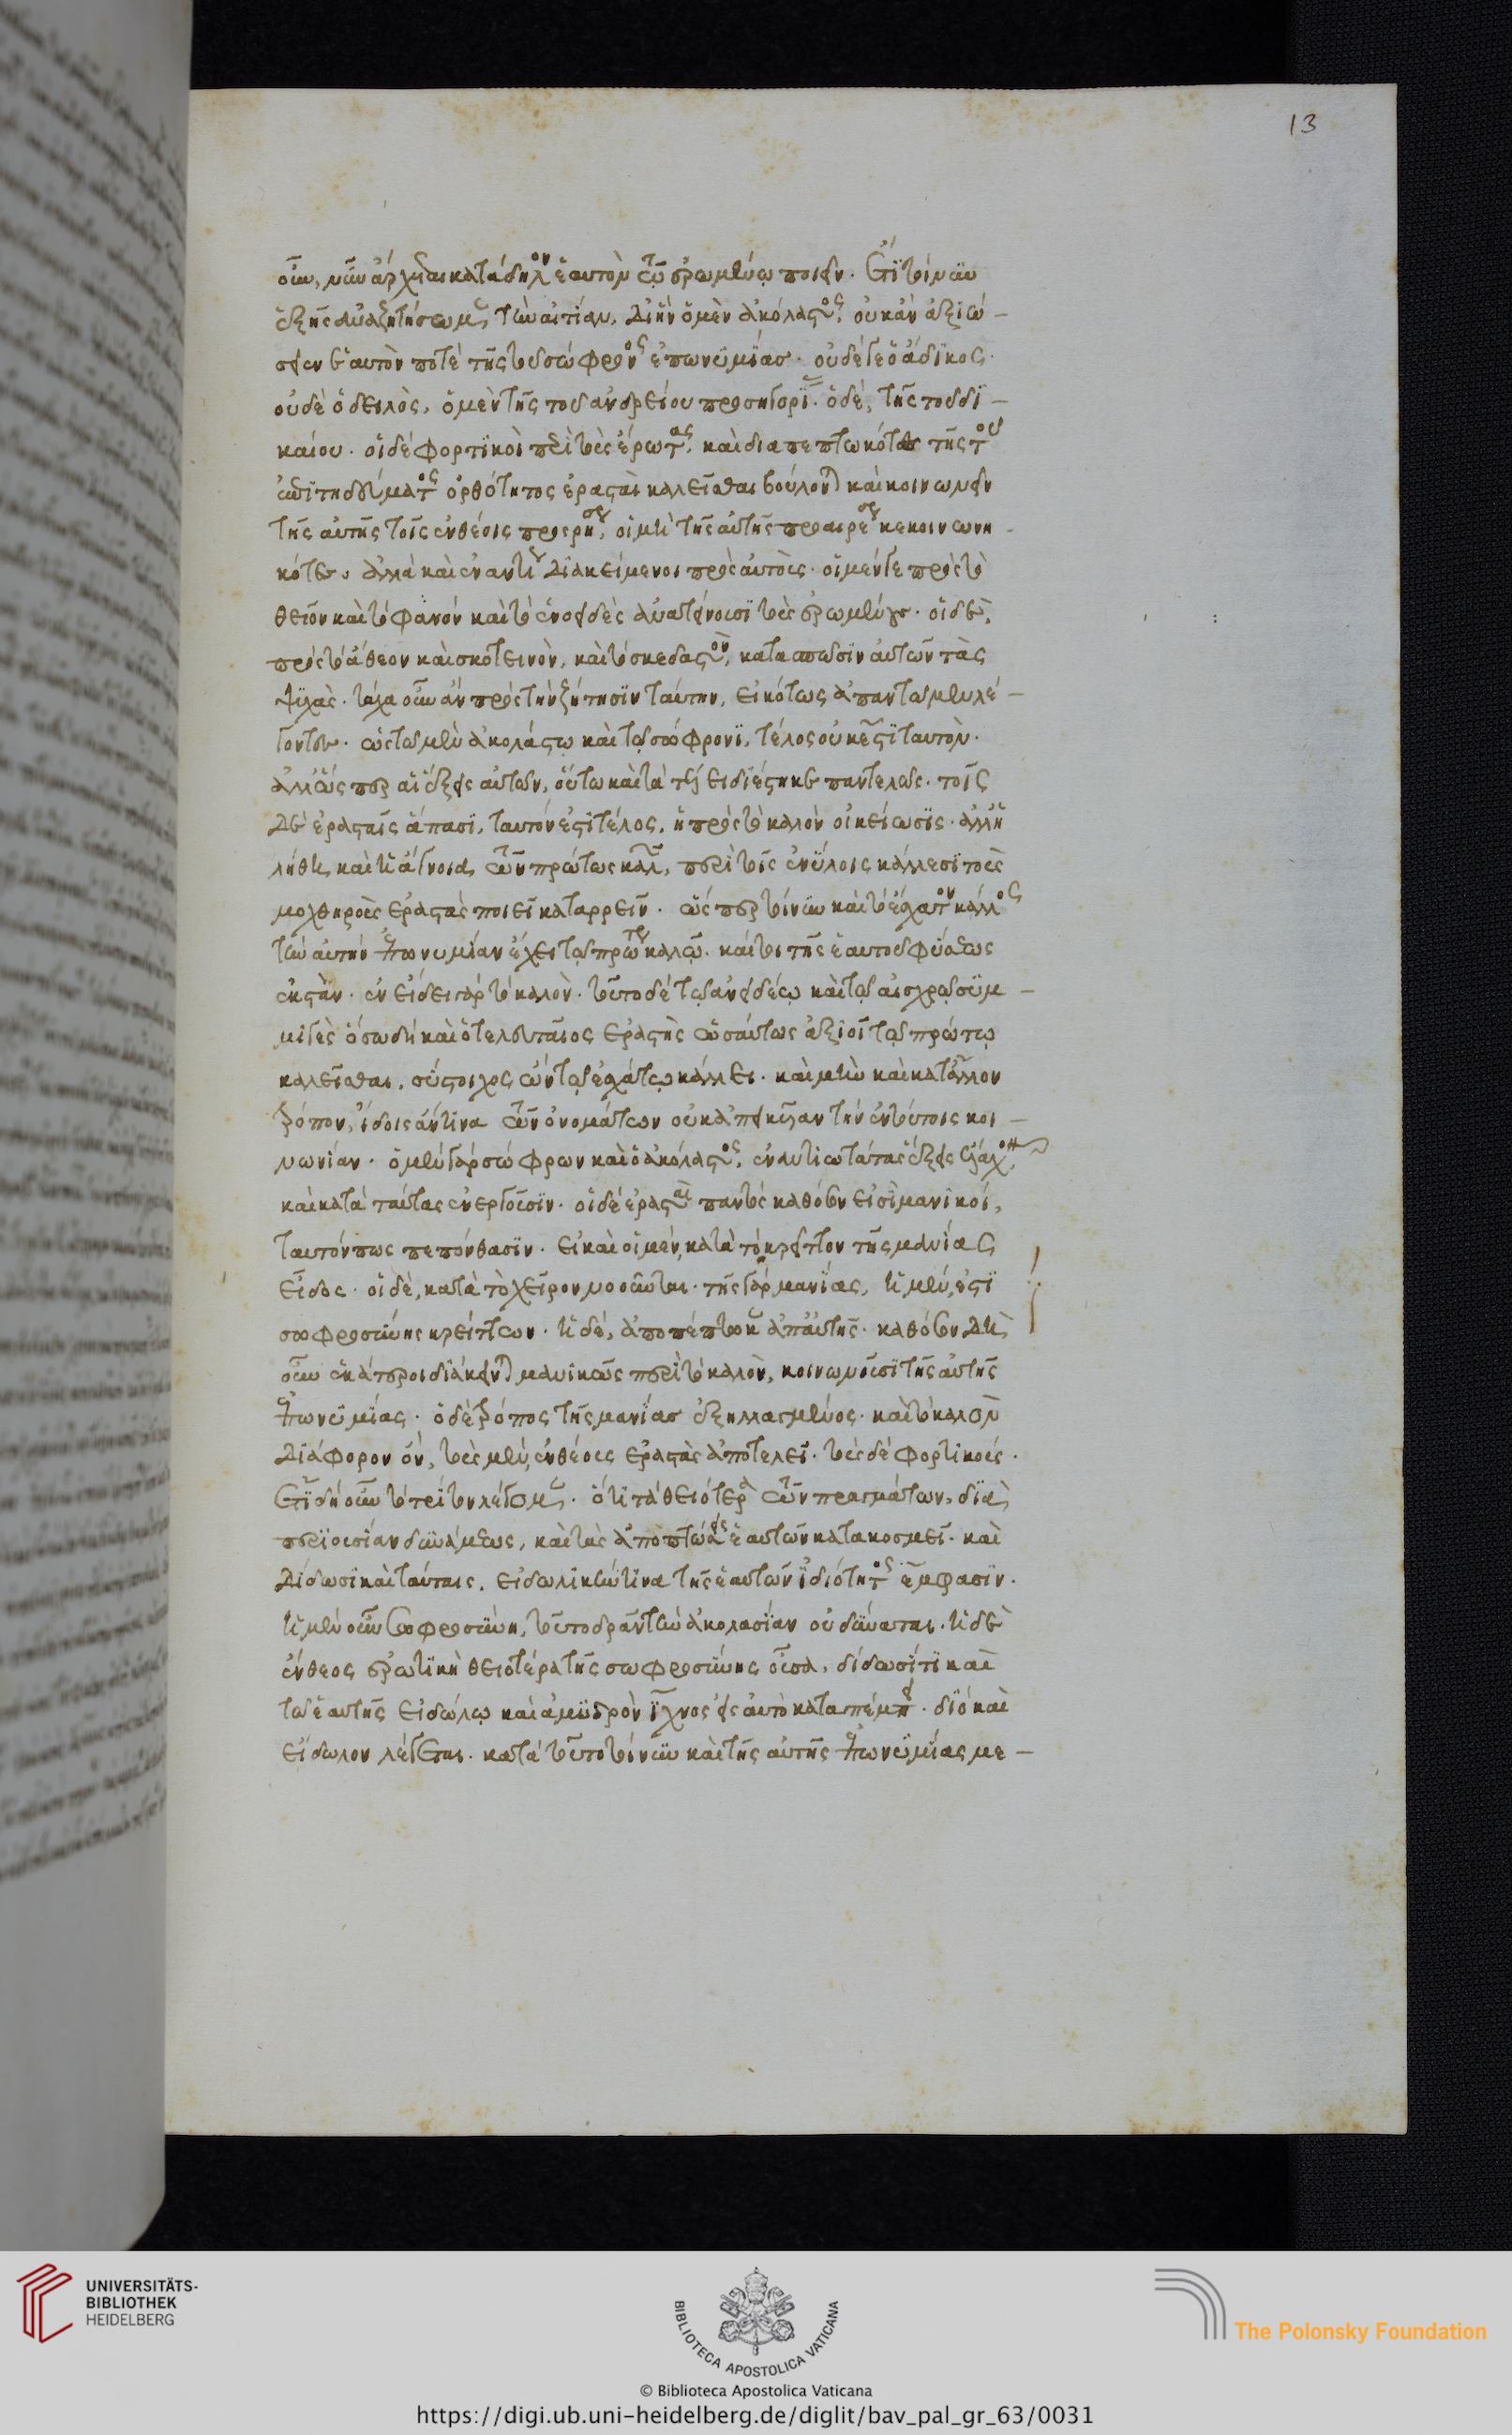 οὖν, νῦν ἄρχεται κατάδηλον ἑαυτὸν τῷ ἐρωμένῳ ποιεῖν. Ἔτι τοίνυν
ἑξῆς ἀναζητήσωμεν τὴν αἰτίαν, δι' ἣν ὁ μὲν ἀκόλαστος, οὐκ ἂν ἀξιώ-
σειεν ἑαυτὸν ποτὲ τῆς τοῦ σώφρονος ἐπωνυμίας· οὐδέ γε ὁ ἄδικος·
οὐδὲ ὁ δειλὸς, ὁ μὲν τῆς τοῦ ἀνδρείου προσηγορίας· ὁ δὲ, τῆς τοῦ δι-
καίου· οἱ δὲ φορτικοὶ περὶ τοὺς ἔρωτας, καὶ διαπεπτωκότες τῆς τοῦ
ἐπιτηδεύματος ὀρθότητος ἐρασταὶ καλεῖσθαι βούλονται καὶ κοινωνεῖν
τῆς αὐτῆς τοῖς ἐνθέοις προσρήσεως, οἱ μὴ τῆς αὐτῆς προαιρέσεως κεκοινωνη-
κότες, ἀλλὰ καὶ ἐναντίως διακείμενοι πρὸς αὐτοὺς· οἱ μέν γε πρὸς τὸ
θεῖον καὶ τὸ φανὸν καὶ τὸ ἑνοειδὲς ἀνατείνουσι τοὺς ἐρωμένους· οἱ δὲ,
πρὸς τὸ ἄθεον καὶ σκοτεινὸν, καὶ τὸ σκεδαστὸν, κατασπῶσιν αὐτῶν τὰς
ψυχὰς. τάχα οὖν ἂν πρὸς τὴν ζήτησιν ταύτην, εἰκότως ἀπαντῶμεν λέ-
γοντες· ὡς τῷ μὲν ἀκολάστῳ καὶ τῷ σώφρονι, τέλος οὐκ ἔστι ταυτὸν·
ἀλλ' ὥσπερ αἱ ἕξεις αὐτῶν, οὕτω καὶ τὰ τέλη διέστηκε παντελῶς· τοῖς
δὲ ἐρασταῖς ἅπασι, ταυτόν ἐστι τέλος, ἡ πρὸς τὸ καλὸν οἰκείωσις· ἀλλ' ἡ
λήθη, καὶ ἡ ἄγνοια, τῶν πρώτως καλῶν, περὶ τοῖς ἐνύλοις κάλλεσι τοὺς
μοχθηροὺς ἐραστὰς ποιεῖ καταρρεῖν. ὥσπερ τοίνυν καὶ τὸ ἔσχατον κάλλος
τὴν αὐτὴν ἐπωνυμίαν ἔχει τῷ πρώτῳ καλῷ. καίτοι τῆς ἑαυτοῦ φύσεως
ἐκστὰν· ἐν εἴδει γὰρ τὸ καλὸν· τοῦτο δὲ τῷ ἀνειδέῳ καὶ τῷ αἰσχρῷ συμ-
μιγὲς ὅσω δὴ καὶ ὁ τελευταῖος ἐραστὴς ὡσαύτως ἀξιοῖ τῷ πρώτῳ
καλεῖσθαι, σύστοιχος ὢν τῷ ἐσχάτῳ κάλλει. καὶ μὴν καὶ κατ' ἄλλον
τρόπον, ἴδοις ἄν τινα τῶν ὀνομάτων οὐκ ἀπεικυῖαν τὴν ἐν τούτοις κοι-
νωνίαν· ὁ μὲν γὰρ σώφρων καὶ ὁ ἀκόλαστος, ἐναντιωτάτας ἕξεις ἔλαχον,
καὶ κατὰ ταύτας ἐνεργοῦσιν· οἱ δὲ ἐρασταὶ πάντες καθόσον εἰσὶ μανικοί,
ταυτόν πως πεπόνθασιν. εἰ καὶ οἱ μέν, κατὰ τὸ κρεῖττον τῆς μανίας
εἶδος· οἱ δὲ, κατὰ τὸ χεῖρον νοσοῦνται· τῆς γὰρ μανίας, ἡ μέν, ἐστι
σωφροσύνης κρείττων· ἡ δὲ, ἀποπέπτωκεν ἀπ' αὐτῆς· καθόσον δὴ
οὖν ἑκάτεροι διάκεινται μανικῶς περὶ τὸ καλὸν, κοινωνοῦσι τῆς αὐτῆς
ἐπωνυμίας· ὁ δὲ τρόπος τῆς μανίας ἐξηλλαγμένος· καὶ τὸ καλὸν
διάφορον ὂν, τοὺς μὲν, ἐνθέους ἐραστὰς ἀποτελεῖ· τοὺς δὲ φορτικούς.
Ἔτι δὴ οὖν τὸ τρίτον λέγομεν· ὅτι τὰ θειότερα τῶν πραγμάτων, διὰ
περιουσίαν δυνάμεως, καὶ τὰς ἀποπτώσεις ἑαυτῶν κατακοσμεῖ· καὶ
δίδωσι καὶ ταύταις, εἰδωλικήν τινα τῆς ἑαυτῶν ἰδιότητος ἔμφασιν.
ἡ μὲν οὖν σωφροσύνη, τοῦτο δρᾶν τὴν ἀκολασίαν οὐ δύναται· ἡ δὲ
ἔνθεος ἐρωτικὴ θειοτέρα τῆς σωφροσύνης οὖσα, δίδωσί τι καὶ
τῷ ἑαυτῆς εἰδώλῳ καὶ ἀμυδρὸν ἴχνος εἰς αὐτὸ καταπέμπει· διὸ καὶ
εἴδωλον λέγεται. κατὰ τοῦτο τοίνυν καὶ τῆς αὐτῆς ἐπωνυμίας με-
13
UNIVERSITÄTS-
BIBLIOTHEK
HEIDELBERG
BIBLIOTECA APOSTOLICA VATICANA
The Polonsky Foundation
© Biblioteca Apostolica Vaticana
https://digi.ub.uni-heidelberg.de/diglit/bav_pal_gr_63/0031